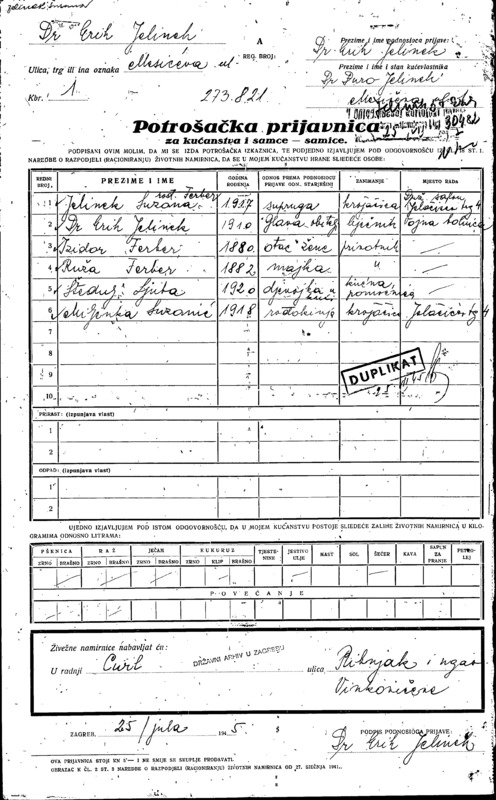 Dr Erik Jelinek
A
REG. BROJ:
Prezime i ime podnosioca prijave:
Dr Erik Jelinek
Ulica, trg ili ina oznaka Mesićeva ul
Prezime i ime i stan kućevlastnika
Dr Đuro Jelinek
Kbr. 1.
273.821
30421
Potrošačka prijavnica
za kućanstva i samce — samice.
POTPISANI OVIM MOLIM, DA MI SE IZDA POTROŠAČKA ISKAZNICA, TE PODJEDNO IZJAVLJUJEM POD ODGOVORNOŠĆU IZ ST. 1.
NAREDBE O RAZPODJELI (RACIONIRANJU) ŽIVOTNIH NAMIRNICA, DA SE U MOJEM KUĆANSTVU HRANE SLIJEDEĆE OSOBE:
REDNI BROJ. PREZIME I IME GODINA ROĐENJA ODNOS PREMA PODNOSIOCU PRIJAVE ODN. STARJEŠINI ZANIMANJE MJESTO RADA
1 Jelinek Suzana rođ. Ferber 1917 supruga krojačica Jelačićev tg 4
2 Dr Erik Jelinek 1910 Glava obitelj liječnik
3 Izidor Ferber 1880 otac žene privatnik —
4 Ruža Ferber 1882 majka " —
5 Ljuta 1920 djevojka u kući kućna pomoćnica —
6 Suzanić 1918 krojačica Jelačićev tg 4
7
8
9
10
DUPLIKAT
PRIRAST: (ispunjava vlast)
1
2
ODPAD: (ispunjava vlast)
1
2
UJEDNO IZJAVLJUJEM POD ISTOM ODGOVORNOŠĆU, DA U MOJEM KUĆANSTVU POSTOJE SLJEDEĆE ZALIHE ŽIVOTNIH NAMIRNICA U KILO-
GRAMIMA ODNOSNO LITRAMA:
PŠENICA RAŽ JEČAM KUKURUZ TJESTE-NINE JESTIVO ULJE MAST SOL ŠEĆER KAVA SAPUN ZA PRANJE PETRO-LEJ
ZRNO BRAŠNO ZRNO BRAŠNO ZRNO BRAŠNO ZRNO KLIP BRAŠNO
POVEĆANJE
Živežne namirnice nabavljat ću:
U radnji
DRŽAVNI ARHIV U ZAGREBU
ulica Ribnjak i ugao
Vinkovićeve
ZAGREB, 25/jula 1945
POTPIS PODNOSIOCA PRIJAVE:
Dr Erik Jelinek
OVA PRIJAVNICA STOJI KN 5·— I NE SMIJE SE SKUPLJE PRODAVATI.
OBRAZAC K ČL. 2 ST. 3 NAREDBE O RAZPODJELI (RACIONIRANJU) ŽIVOTNIH NAMIRNICA OD 27. SIJEČNJA 1941.